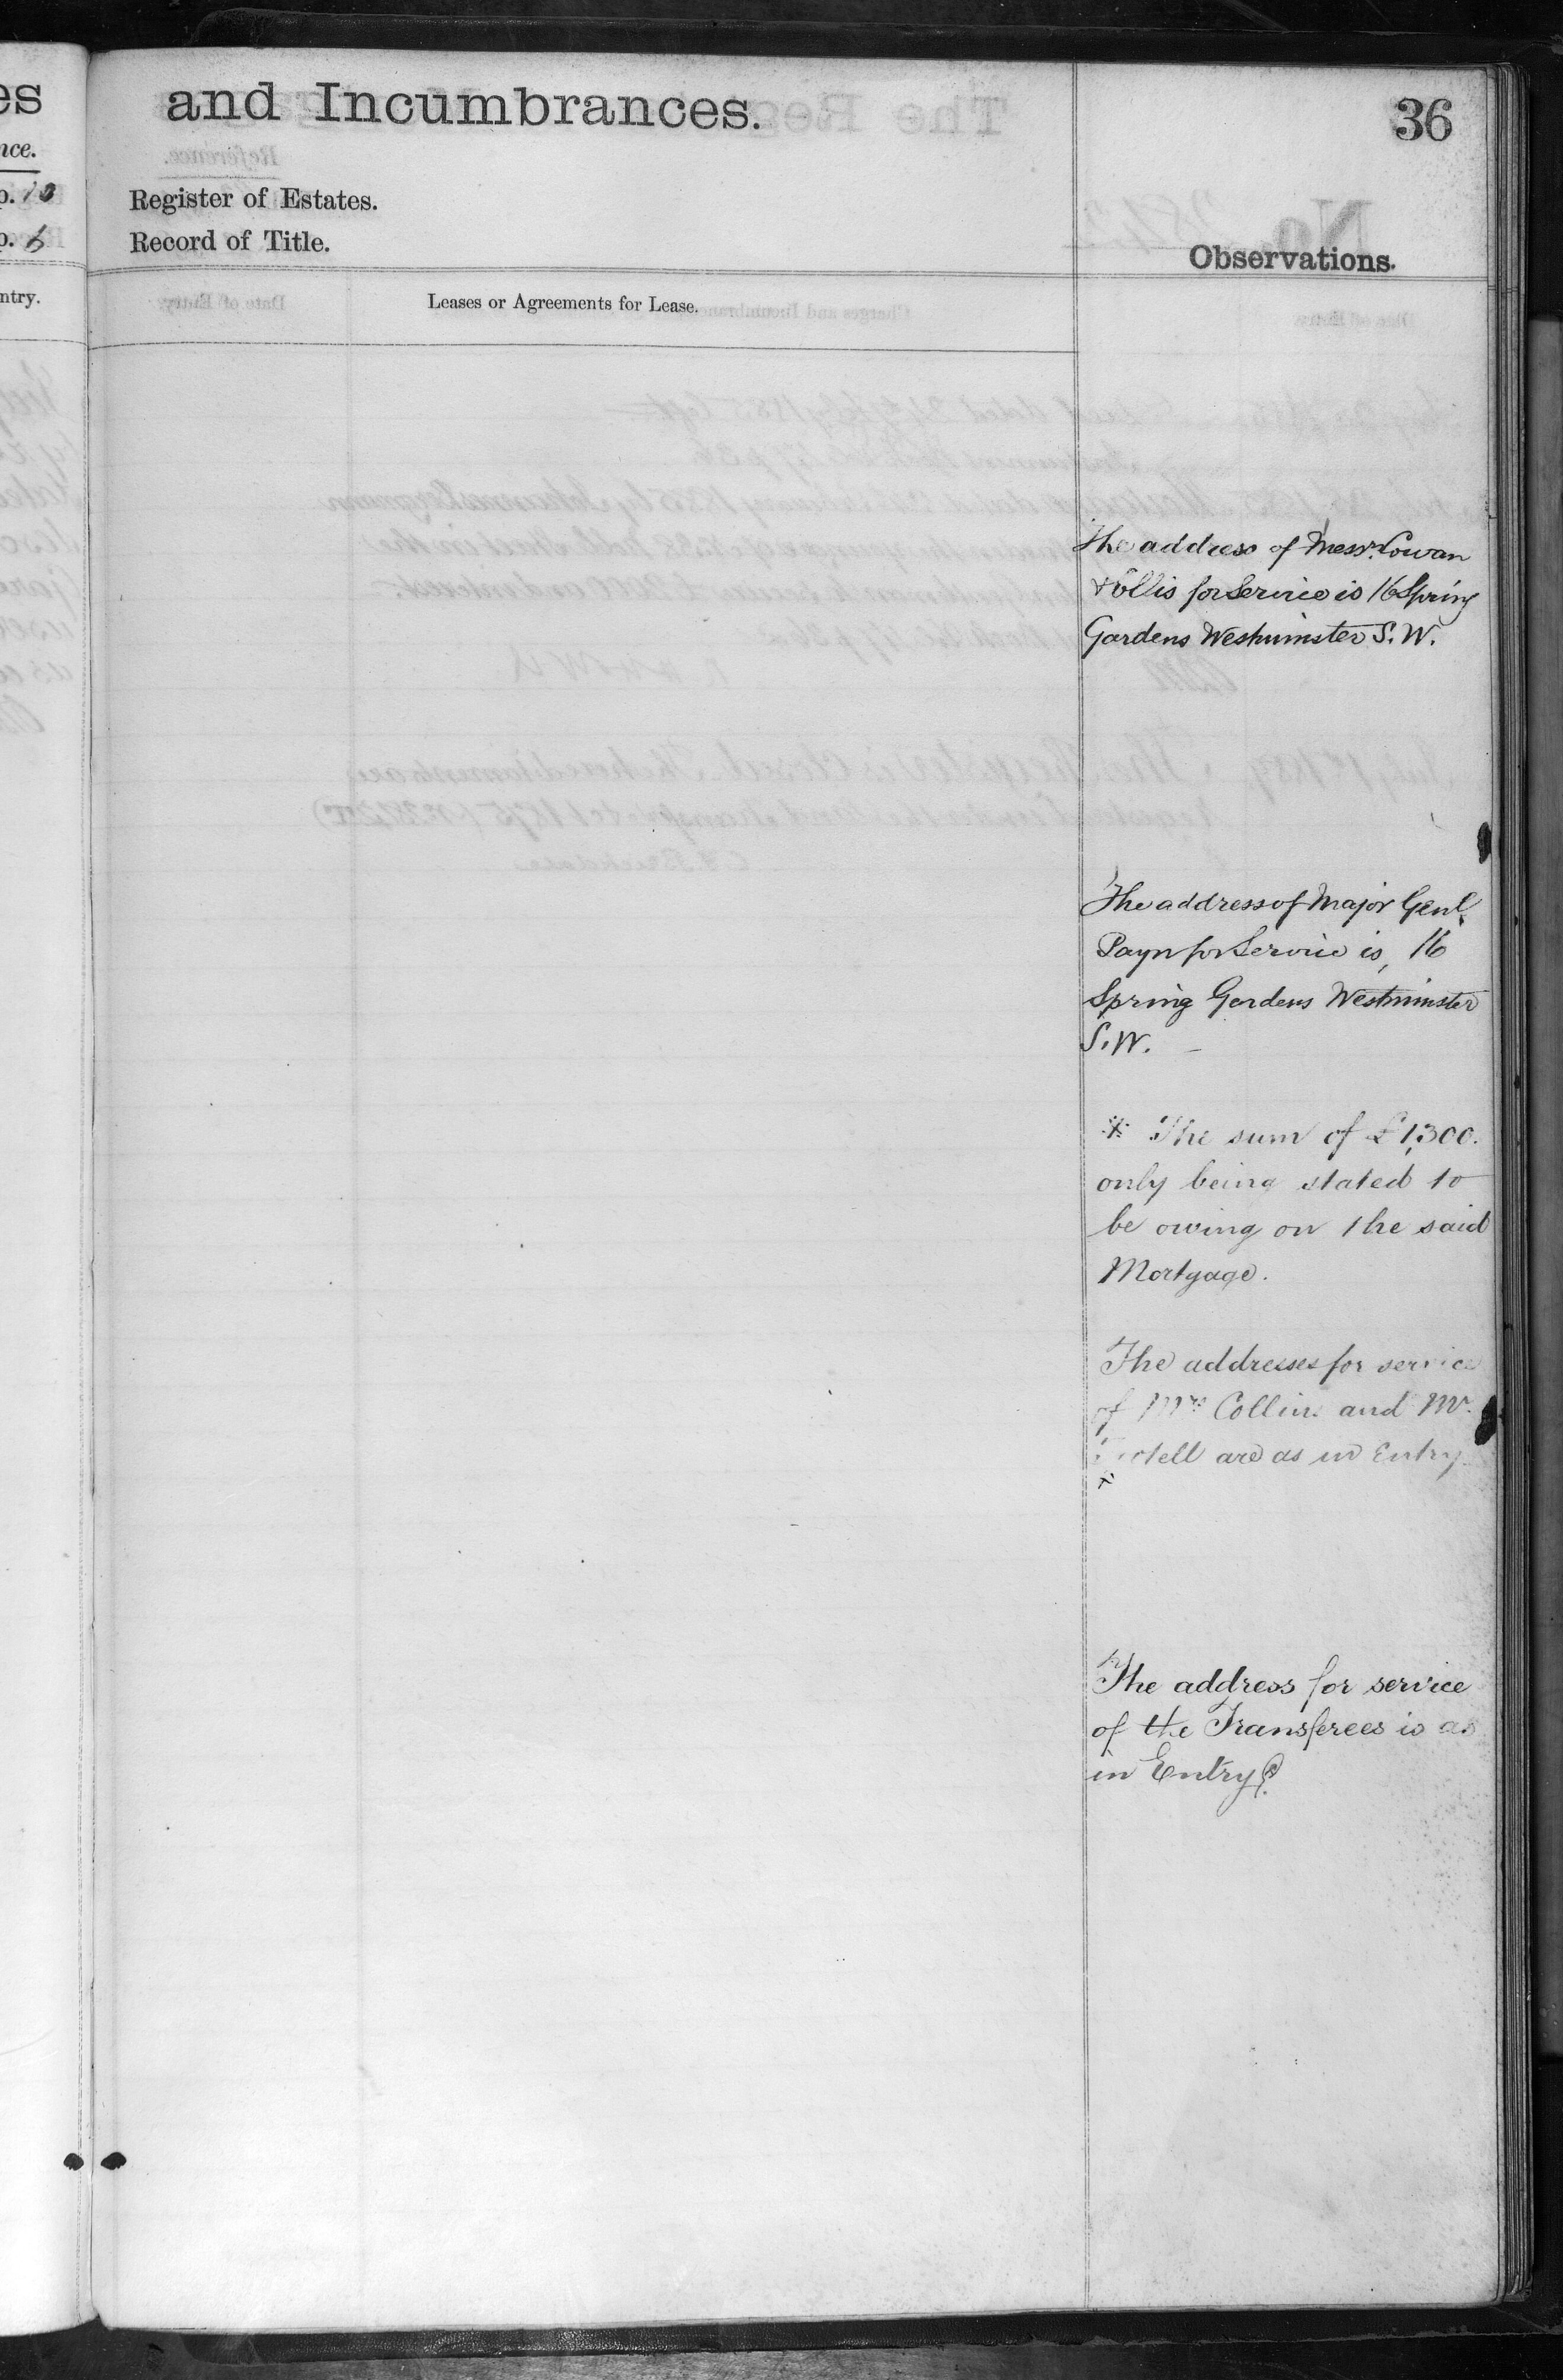 and Incumbrances.
36
Register of Estates.
Record of Title.
Observations.
Leases or Agreements for Lease.
The address of Messrs. Cowan
& Ollis for Service is 16 Spring
Gardens Westminster S.W.
The address of Major Genl.
Payn for Service is, 16
Spring Gardens Westminster
S.W. –
* The sum of £1,300.
only being stated to
be owing on the said
Mortgage.
The addresses for service
of Mrs Collins and Mr.
are as in Entry
The address for service
of the Transferees is as
in Entry